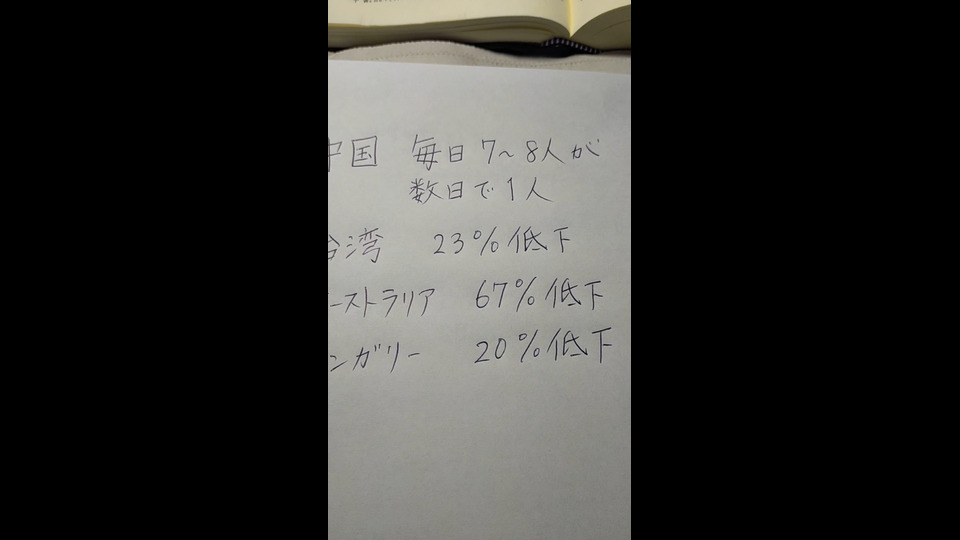 中国 毎日7～8人が
数日で1人
台湾 23%低下
ーストラリア 67%低下
ンガリー 20%低下